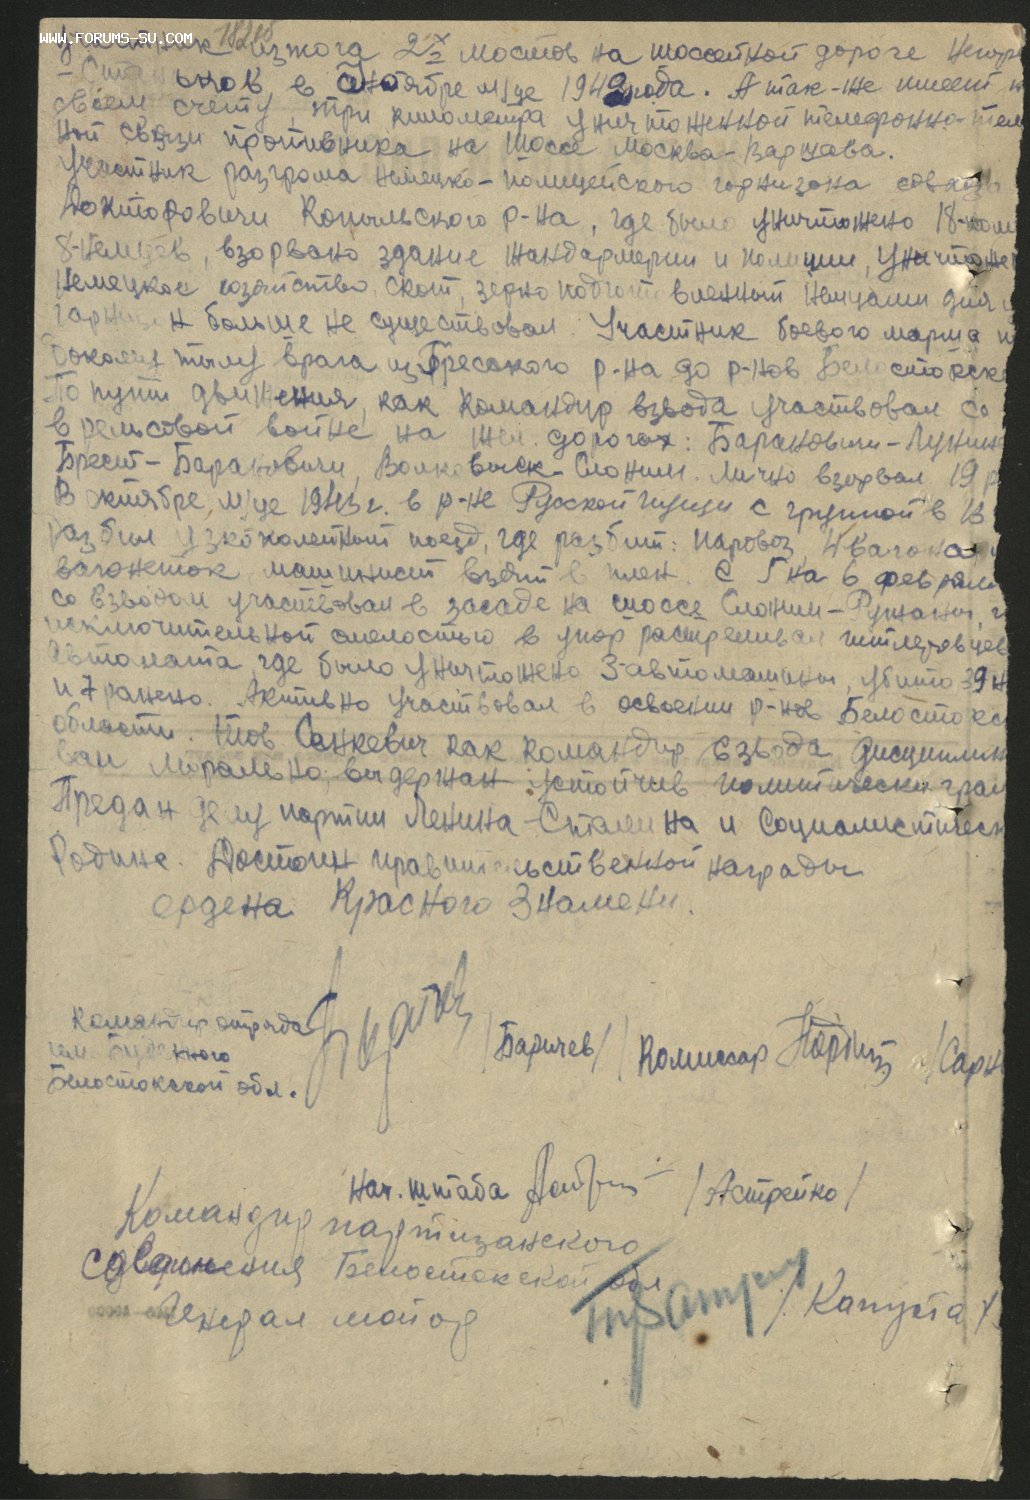 www.forums-su.com
18265
изжога 2х мостов на шоссейной дороге
в Октябре м/це 1942 года. А так-же имеет
своем счету, три километра уничтоженной телефонно-тел
ной связи противника на Шоссе Москва-Варшава.
Участник разгрома немецко-полицейского гарнизона совхоз
Доктаровичи Копыльского р-на, где было уничтожено 18-пол
8-немцев, взорвано здание жандармерии и полиции, уничтоже
немецкое хозяйство скот, зерно подготовленной немцами для
гарнизон больше не существовал. Участник боевого марша
глубокому тылу врага из Бресского р-на до р-нов Белостокско
По пути движения, как командир взвода участвовал со
в рельсовой войне на жел. дорогах: Барановичи-Лунин
Брест-Барановичи, Волковыск-Слоним. Лично взорвал 19 р
В октябре м/це 1943 г. в р-не Русской пущи с группой в 13
разбил узкоколейный поезд, где разбит: паровоз, 4 вагона
вагонеток, машинист взят в плен. С 5 на 6 февраля
со взводом участвовал в засаде на шоссе Слоним-Ружаны,
исключительной смелостью в упор растреливал гитлеровцев
автомата, где было уничтожено 3-автомашины, убито 39 н
и 7 ранено. Активно участвовал в освоении р-нов Белостокс
области. Тов Санкевич как командир взвода дисциплин
ван морально, выдержан устойчив политически грам
Предан делу партии Ленина-Сталина и Социалистическ
Родине. Достоин правительственной награды
ордена Красного Знамени.
Командир отряда
им. Буденного /Баричев/ Комиссар /Сарн
Белостокской обл.
Нач. штаба /Астрейко/
Командир партизанского
соединения Белостокской обл
Генерал майор /Капуста/